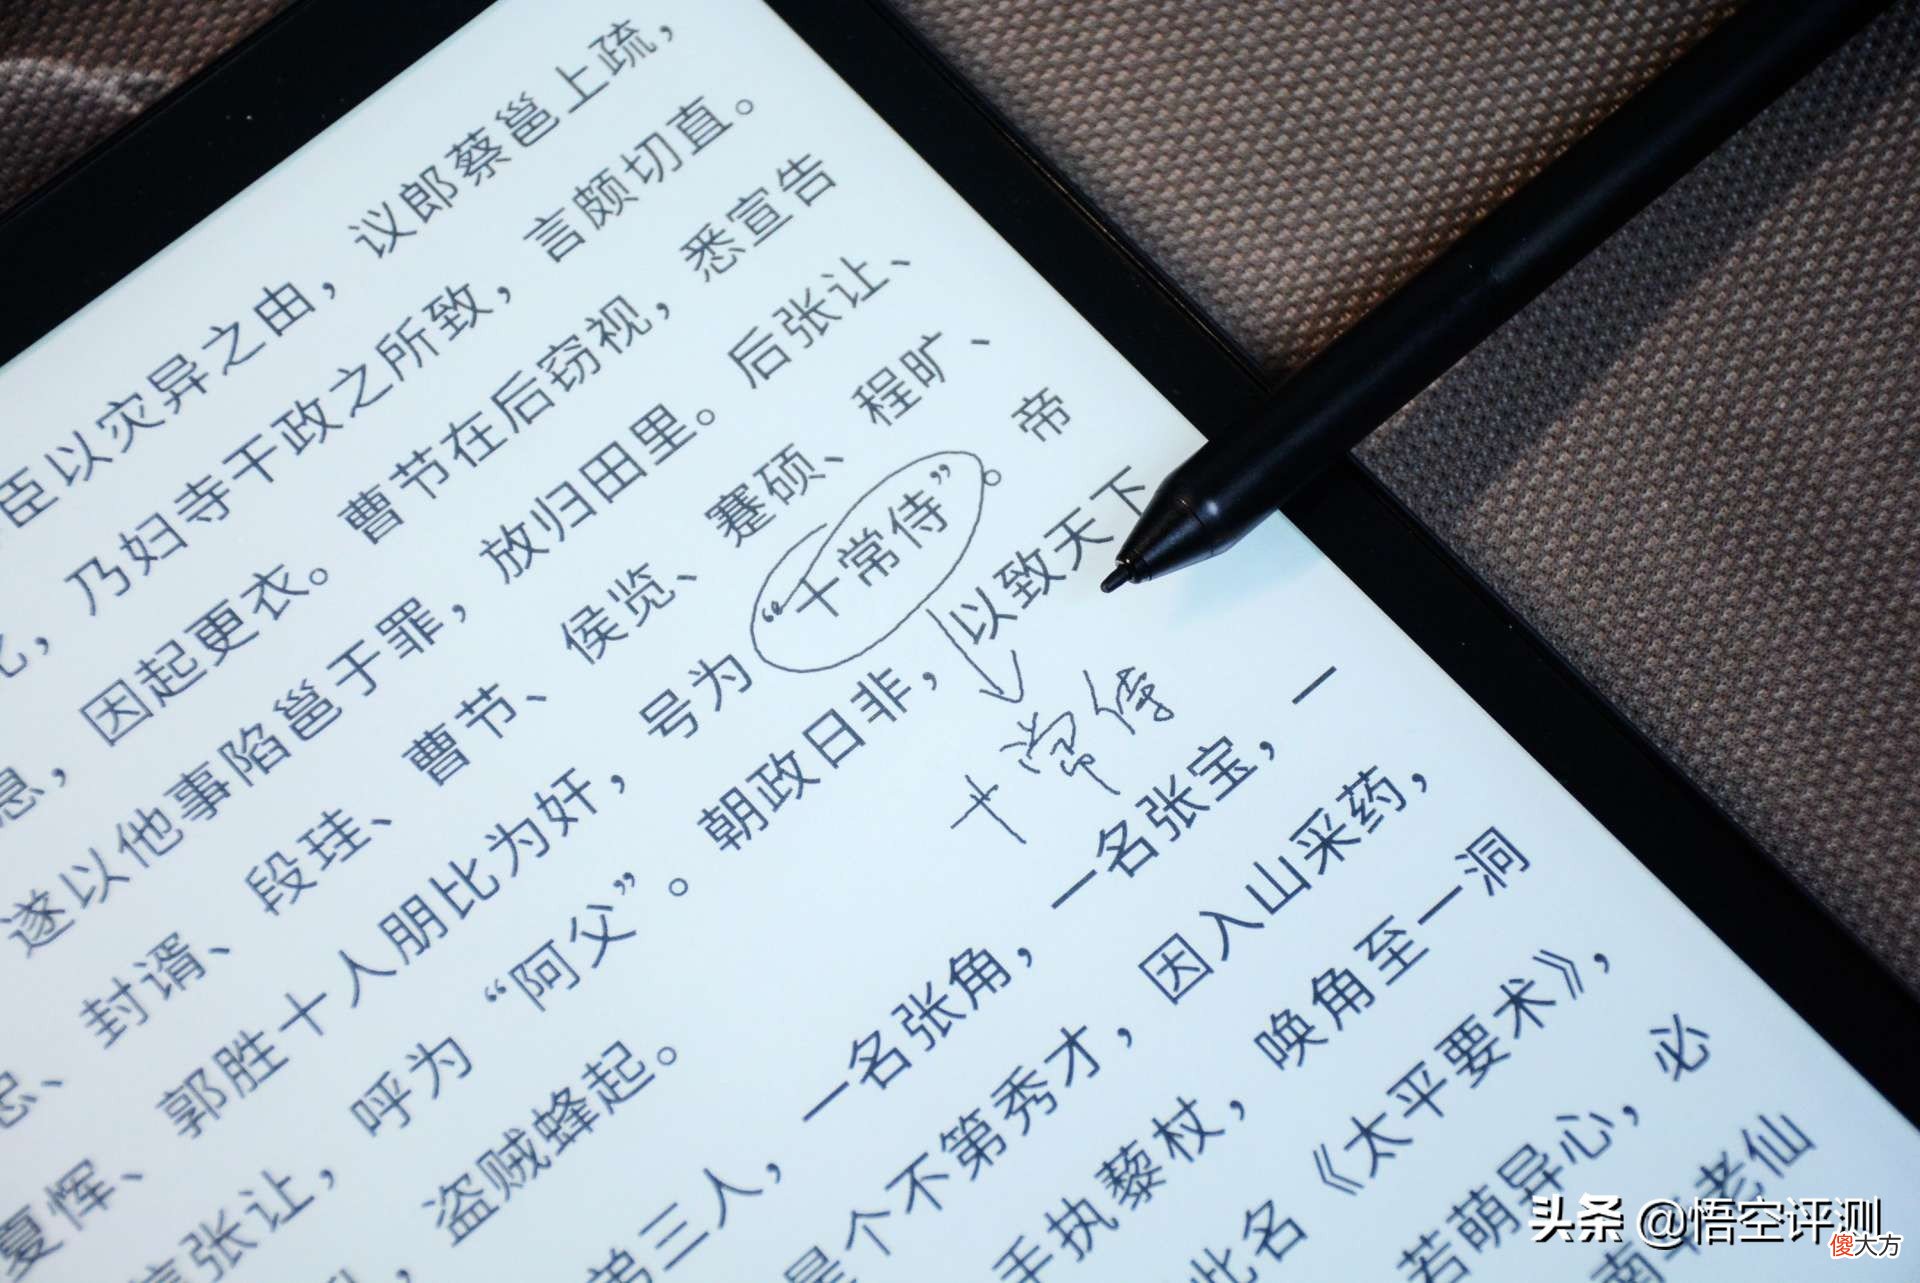 臣以灾异之由，议郎蔡邕上疏，
，乃妇寺干政之所致，言颇切直。
息，因起更衣。曹节在后窃视，悉宣告
遂以他事陷邕于罪，放归田里。后张让、
忠、封谞、段珪、曹节、侯览、蹇硕、程旷、
夏恽、郭胜十人朋比为奸，号为“十常侍”。帝
信张让，呼为“阿父”。朝政日非，以致天下
，盗贼蜂起。
十常侍
弟三人，一名张角，一名张宝，一
是个不第秀才，因入山采药，
手执藜杖，唤角至一洞
此名《太平要术》，
若萌异心，必
南华老仙
头条 @悟空评测
傻大方